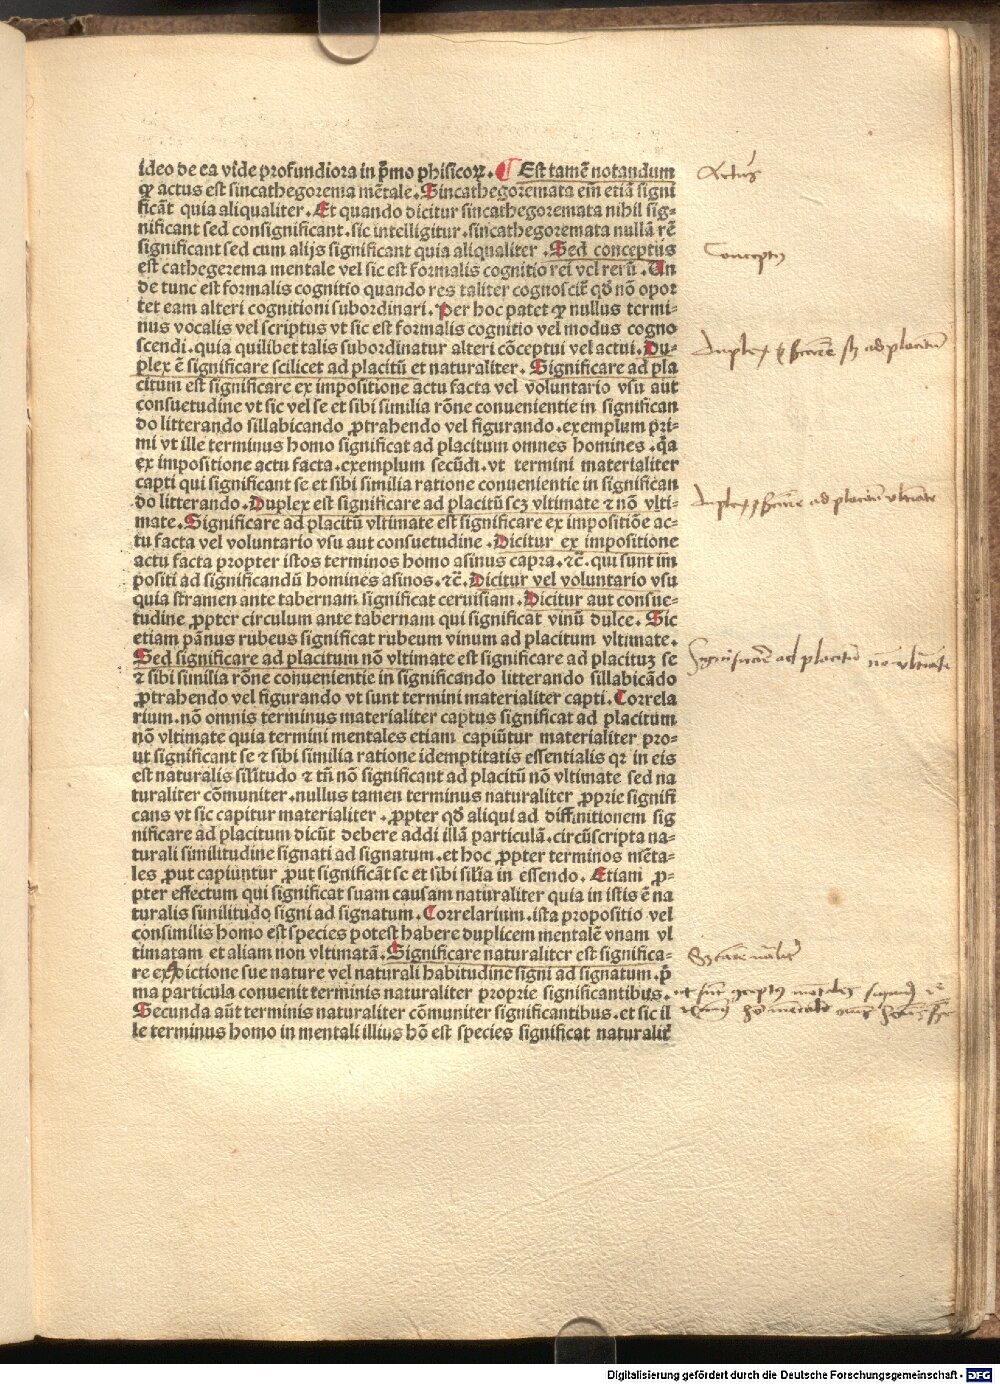 ideo de ea vide profundiora in p̄mo phisicoꝝ. ¶ Est tamē notandum
ꝙ actus est sincathegorema mētale. Sincathegoremata em̄ etiā signi
ficāt quia aliqualiter. Et quando dicitur sincathegoremata nihil sig⸗
nificant sed consignificant. sic intelligitur. sincathegoremata nullā rē
significant sed cum alijs significant quia aliqualiter. Sed conceptus
est cathegerema mentale vel sic est formalis cognitio rei vel rerū. Un
de tunc est formalis cognitio quando res taliter cognoscit̄ qd̄ nō opor
tet eam alteri cognitioni subordinari. Per hoc patet ꝙ nullus termi⸗
nus vocalis vel scriptus vt sic est formalis cognitio vel modus cogno
scendi. quia quilibet talis subordinatur alteri cōceptui vel actui. Du⸗
plex ē significare scilicet ad placitū et naturaliter. Significare ad pla
citum est significare ex impositione actu facta vel voluntario vsu aut
consuetudine vt sic vel se et sibi similia rōne conuenientie in significan
do litterando sillabicando ꝓtrahendo vel figurando. exemplum pri⸗
mi vt ille terminus homo significat ad placitum omnes homines. qa
ex impositione actu facta. exemplum secūdi. vt termini materialiter
capti qui significant se et sibi similia ratione conuenientie in significan
do litterando. Duplex est significare ad placitū scꝫ vltimate ⁊ nō vlti⸗
mate. Significare ad placitū vltimate est significare ex impositiōe ac⸗
tu facta vel voluntario vsu aut consuetudine. Dicitur ex impositione
actu facta propter istos terminos homo asinus capra. ⁊c̄. qui sunt im
positi ad significandū homines asinos. ⁊c̄. Dicitur vel voluntario vsu
quia stramen ante tabernam significat ceruisiam. Dicitur aut consue⸗
tudine ꝓpter circulum ante tabernam qui significat vinū dulce. Sic
etiam pānus rubeus significat rubeum vinum ad placitum vltimate.
Sed significare ad placitum nō vltimate est significare ad placituꝫ se
⁊ sibi similia rōne conuenientie in significando litterando sillabicādo
ꝓtrahendo vel figurando vt sunt termini materialiter capti. Correla
rium. nō omnis terminus materialiter captus significat ad placitum
nō vltimate quia termini mentales etiam capiūtur materialiter pro⸗
ut significant se ⁊ sibi similia ratione idemptitatis essentialis qꝛ in eis
est naturalis silitudo ⁊ tn̄ nō significant ad placitū nō vltimate sed na
turaliter cōmuniter. nullus tamen terminus naturaliter ꝓprie signifi
cans vt sic capitur materialiter. ꝓpter qd̄ aliqui ad diffinitionem sig
nificare ad placitum dicūt debere addi illā particulā. circūscripta na⸗
turali similitudine signati ad signatum. et hoc ꝓpter terminos mēta⸗
les ꝓut capiuntur ꝓut significāt se et sibi silia in essendo. Etiam ꝓ⸗
pter effectum qui significat suam causam naturaliter quia in istis ē na
turalis similitudo signi ad signatum. Correlarium. ista propositio vel
consimilis homo est species potest habere duplicem mentalē vnam vl
timatam et aliam non vltimatā. Significare naturaliter est significa⸗
re ex dictione sue nature vel naturali habitudine signi ad signatum. p̄
ma particula conuenit terminis naturaliter proprie significantibus.
Secunda aūt terminis naturaliter cōmuniter significantibus. et sic il
le terminus homo in mentali illius hō est species significat naturalit̄
Actus
Conceptus
Significare ad placitū nō vltimate
Digitalisierung gefördert durch die Deutsche Forschungsgemeinschaft - DFG